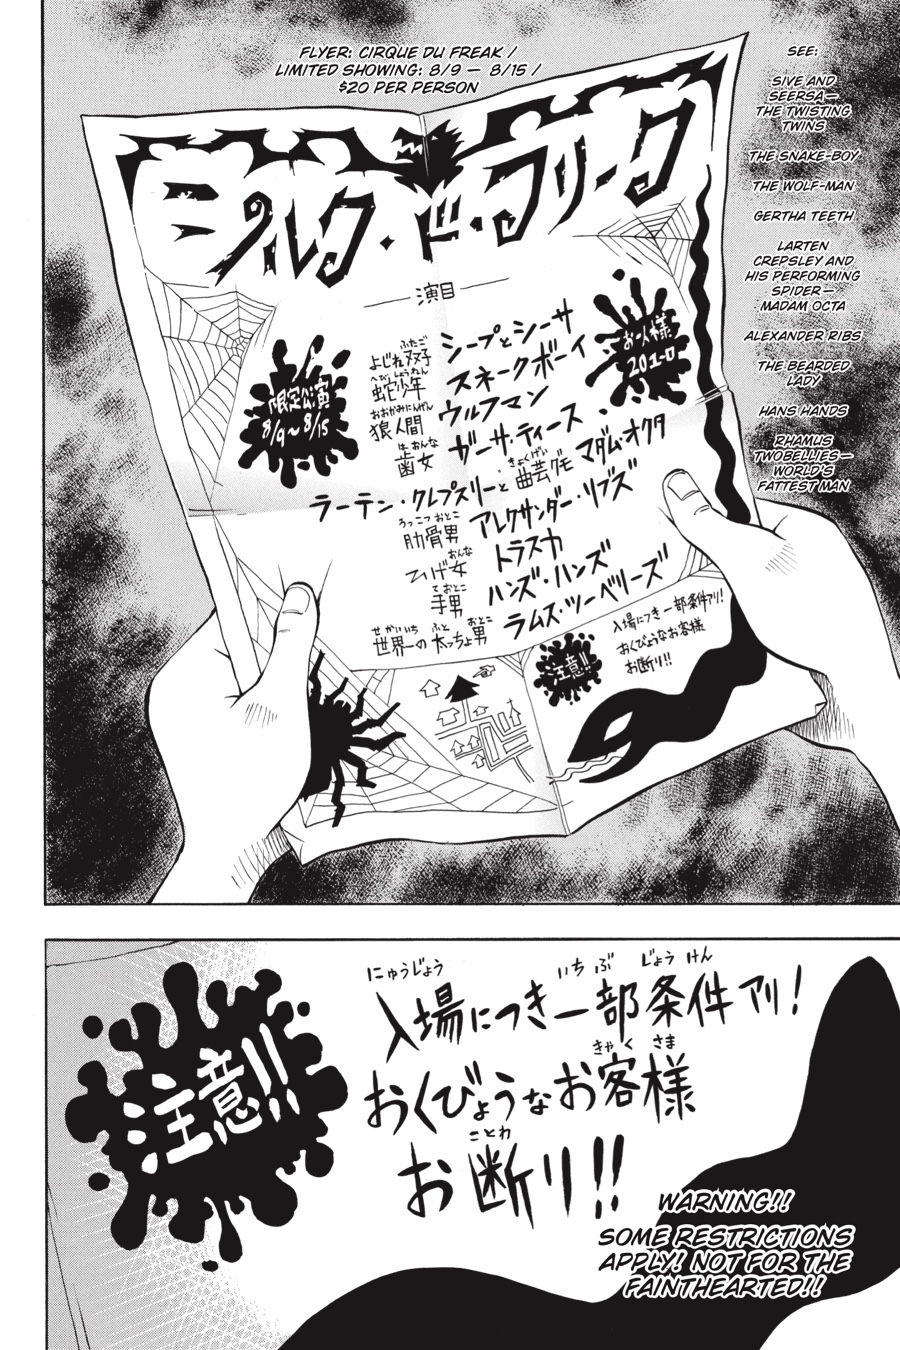 FLYER: CIRQUE DU FREAK /
LIMITED SHOWING: 8/9 — 8/15 /
$20 PER PERSON
SEE:
SIVE AND
SEERSA—
THE TWISTING
TWINS
THE SNAKE-BOY
THE WOLF-MAN
GERTHA TEETH
LARTEN
CREPSLEY AND
HIS PERFORMING
SPIDER—
MADAM OCTA
ALEXANDER RIBS
THE BEARDED
LADY
HANS HANDS
RHAMUS
TWOBELLIES—
WORLD'S
FATTEST MAN
シルク・ド・フリーク
演目
限定公演
8/9〜8/15
お一人様
20ユーロ
ふたご
よじれ双子 シーブとシーサ
へびしょうねん
蛇少年 スネークボーイ
おおかみにんげん
狼人間 ウルフマン
はおんな
歯女 ガーサ・ティース
きょくげい
ラーテン・クレプスリーと曲芸グモ マダム・オクタ
ろっこつおとこ
肋骨男 アレクサンダー・リブズ
おんな
ひげ女 トラスカ
ておとこ
手男 ハンズ・ハンズ
せかいいち ふと おとこ
世界一の太っちょ男 ラムス・ツーベリーズ
注意!!
入場につき一部条件アリ!
おくびょうなお客様
お断り!!
注意!!
にゅうじょう いちぶ じょうけん
入場につき一部条件アリ!
きゃくさま
おくびょうなお客様
ことわ
お断り!!
WARNING!!
SOME RESTRICTIONS
APPLY! NOT FOR THE
FAINTHEARTED!!